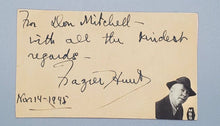 For Don Mitchell -
with all the kindest
regards -
Frazier Hunt
Nov 14 - 1945